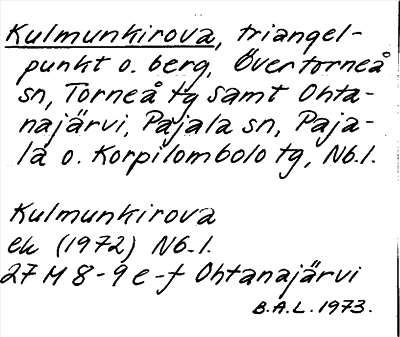 Kulmunkirova, triangel-
punkt o. berg, Övertorneå
sn, Torneå tg samt Ohta-
najärvi, Pajala sn, Paja-
la o. Korpilombolo tg, Nb.l.
Kulmunkirova
ek (1972) Nb.l.
27 M 8-9 e-f Ohtanajärvi
B.A.L. 1973.